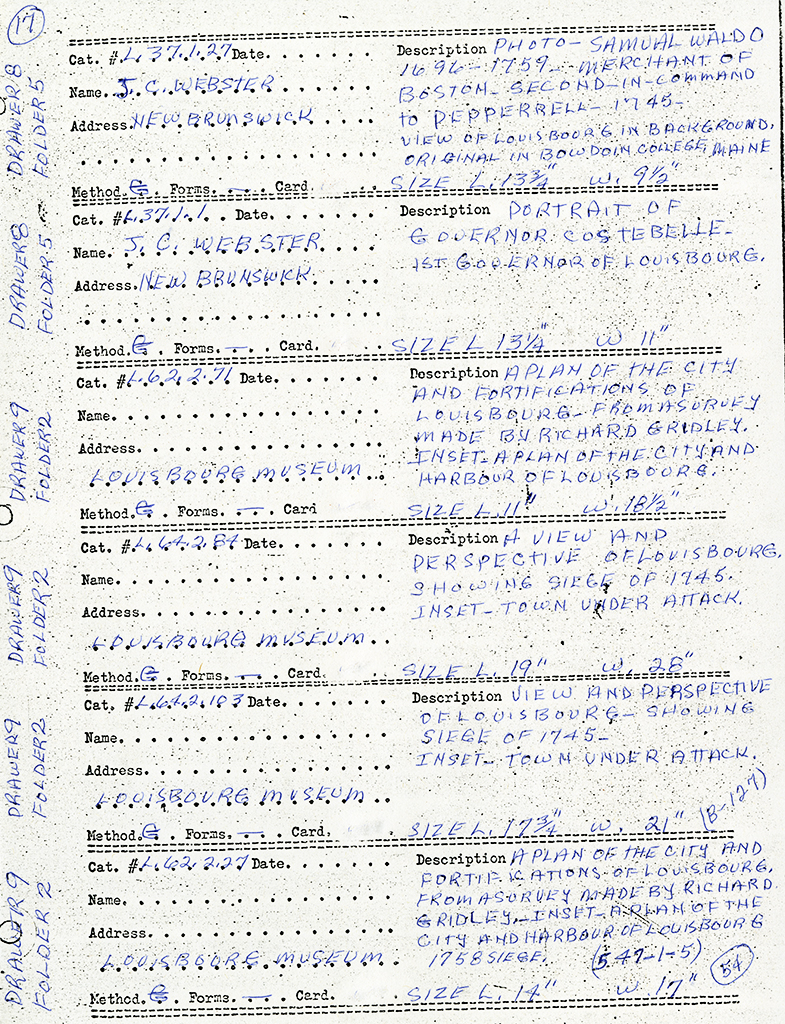 17
DRAWER 8
FOLDER 5
Cat. #L.37.1.27 Date. . . . . . . .
Name. J. C. WEBSTER
Address. NEW BRUNSWICK
Method. G. . Forms. — . Card. . .
Description PHOTO - SAMUAL WALDO
1696-1759. MERCHANT OF
BOSTON - SECOND-IN-COMMAND
to PEPPERRELL - 1745 -
VIEW OF LOUISBOURG IN BACKGROUND.
ORIGINAL IN BOWDOIN COLLEGE, MAINE
SIZE L. 13¾" W. 9½"
DRAWER 8
FOLDER 5
Cat. #L.37.1.1. . Date. . . . . . .
Name. J. C. WEBSTER
Address. NEW BRUNSWICK
Method. G. . Forms. — . Card. . .
Description PORTRAIT OF
GOVERNOR COSTEBELLE -
1ST GOVERNOR OF LOUISBOURG.
SIZE L 13¼" W 11"
DRAWER 9
FOLDER 2
Cat. #L.62.2.71 Date. . . . . . .
Name. . . . . . . . . . . . . . .
Address. . . . . . . . . . . . . .
LOUISBOURG MUSEUM
Method. G. . Forms. — . Card
Description A PLAN OF THE CITY
AND FORTIFICATIONS OF
LOUISBOURG - FROM A SURVEY
MADE BY RICHARD GRIDLEY.
INSET - A PLAN OF THE CITY AND
HARBOUR OF LOUISBOURG.
SIZE L. 11" W. 18½"
DRAWER 9
FOLDER 2
Cat. #L.64.2.84 Date. . . . . . .
Name. . . . . . . . . . . . . . .
Address. . . . . . . . . . . . . .
LOUISBOURG MUSEUM
Method. G. . Forms. — . Card. . .
Description A VIEW AND
PERSPECTIVE OF LOUISBOURG.
SHOWING SIEGE OF 1745.
INSET - TOWN UNDER ATTACK.
SIZE L. 19" W. 28"
DRAWER 9
FOLDER 2
Cat. #L.64.2.103 Date. . . . . . .
Name. . . . . . . . . . . . . . .
Address. . . . . . . . . . . . . .
LOUISBOURG MUSEUM
Method. G. . Forms. — . Card.
Description VIEW AND PERSPECTIVE
OF LOUISBOURG - SHOWING
SIEGE OF 1745 -
INSET - TOWN UNDER ATTACK.
SIZE L. 17¾" W. 21" (B-127)
DRAWER 9
FOLDER 2
Cat. #L.62.2.27 Date. . . . . . .
Name. . . . . . . . . . . . . . .
Address. . . . . . . . . . . . . .
LOUISBOURG MUSEUM
Method. G. . Forms. — . Card. . .
Description A PLAN OF THE CITY AND
FORTIFICATIONS OF LOUISBOURG.
FROM A SURVEY MADE BY RICHARD
GRIDLEY. - INSET - A PLAN OF THE
CITY AND HARBOUR OF LOUISBOURG
1758 SIEGE. (547-1-5)
SIZE L. 14" W 17"
54